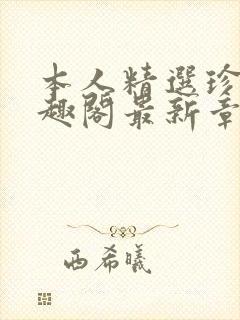 本人精選珍
趣閣最新章
西希曦